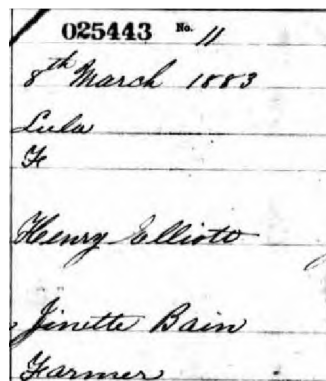 025443 No. 11
8th March 1883
Lula
F
Henry Elliott
Jinette Bain
Farmer